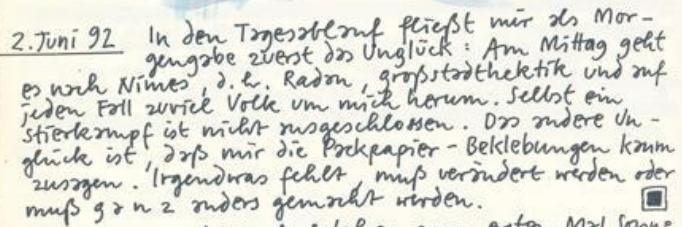 2. Juni 92 In den Tagesablauf fließt mir als Mor-
gengabe zuerst das Unglück: Am Mittag geht
es nach Nîmes, d.h. Radau, großstadthektik und auf
jeden Fall zuviel Volk um mich herum. Selbst ein
Stierkampf ist nicht ausgeschlossen. Das andere Un-
glück ist, daß mir die Packpapier-Beklebungen kaum
zusagen. Irgendwas fehlt, muß verändert werden oder
muß ganz anders gemacht werden.